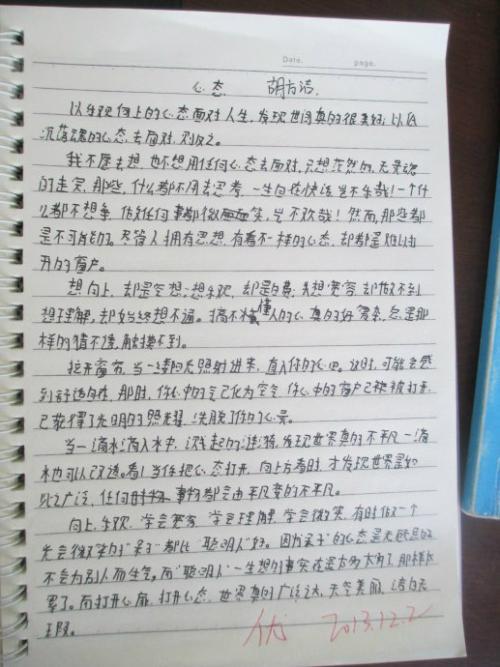 Date. page.
心态 胡方洁
以乐观向上的心态面对人生,发现世间真的很美好;以低
沉落魄的心态去面对,则反之。
我不愿去想,也不想用任何心态去面对,只想茫然的,无灵魂
的走完,那些,什么都不用去思考,一生自在快活岂不乐哉!一个什
么都不想争,做任何事都微微笑,岂不欢哉!然而,那些都
是不可能的。尽管人拥有思想,有着不一样的心态,却都是难以打
开的窗户。
想向上,却是空想;想乐观,却是白费;我想宽容,却做不到
想理解,却始终想不通。搞不懂人的心,真的好复杂,总是那
样的猜不透,触摸不到。
拉开窗帘,当一缕阳光照射进来,直入你的心田。这时,可能会感
到舒适自在,那时,你心中的气已化为空气,你心中的窗户已被被打开,
已获得了光明的照耀,洗脱了你的心灵。
当一滴水滴入水中,溅起的涟漪,发现世界真的不平凡,一滴
水也可以改造。看!当你把心态打开,向上方看时,才发现世界是如
此之广泛,任何事物都会由平凡变的不平凡。
向上,乐观,学会宽容,学会理解,学会微笑,有时做一个
只会微笑的“呆子”都比“聪明人”好。因为呆子的心态是无忧虑的
不会为别人而生气。而“聪明人”一生想的事实在是太多太多了,那样太
累了。而打开心扉,打开心态,世界真的广泛达,天空美丽,洁白无
瑕。
优 2013.12.2